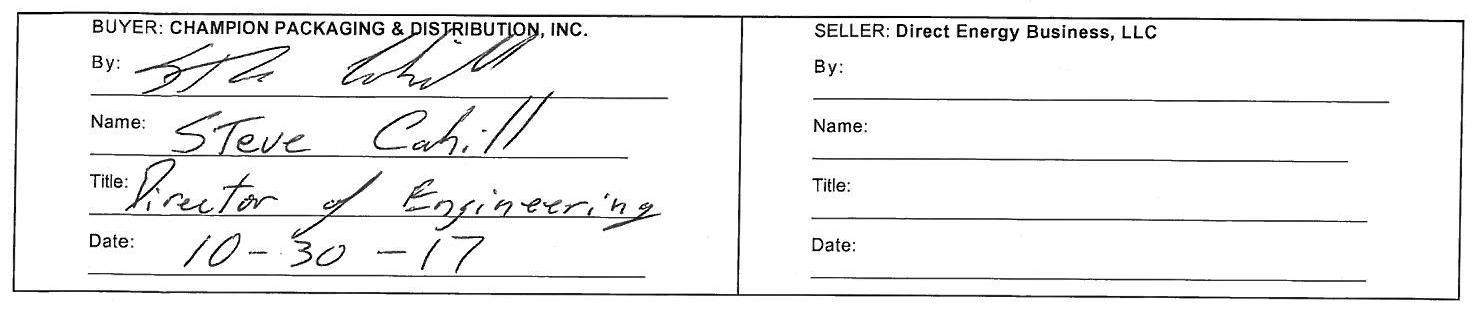 BUYER: CHAMPION PACKAGING & DISTRIBUTION, INC.
By: Steve Cahill
Name: Steve Cahill
Title: Director of Engineering
Date: 10-30-17
SELLER: Direct Energy Business, LLC
By:
Name:
Title:
Date: